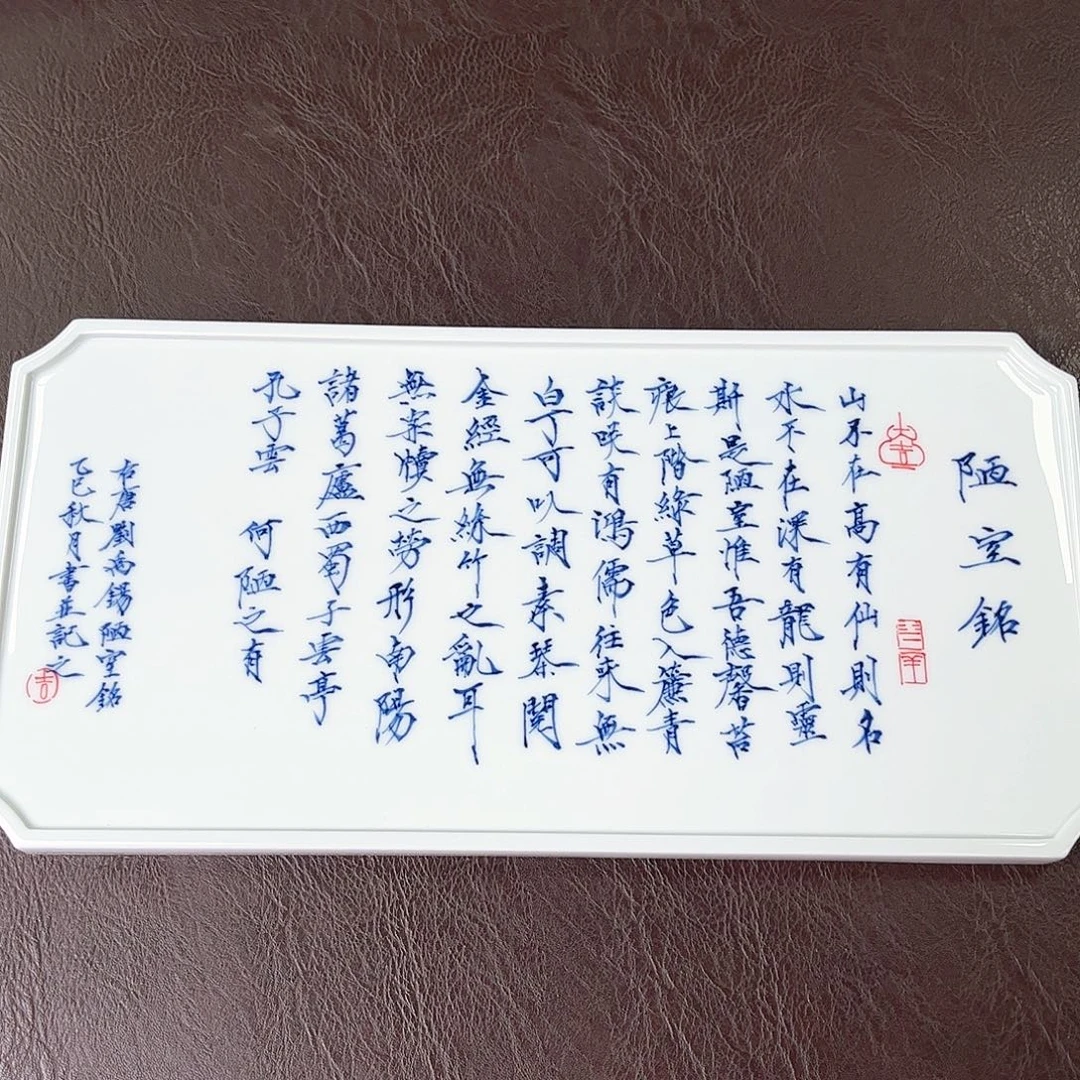 陋室銘
山不在高有仙則名
水不在深有龍則靈
斯是陋室惟吾德馨苔
痕上階綠草色入簾青
談咲有鴻儒往来無
白丁可以調素琴閱
金經無絲竹之亂耳
無案牘之勞形南陽
諸葛廬西蜀子雲亭
孔子雲 何陋之有
右唐劉禹錫陋室銘
乙巳秋月書並記之